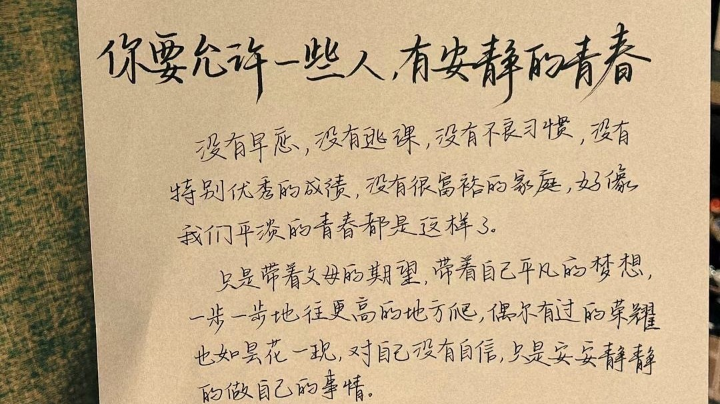 你要允许一些人，有安静的青春
没有早恋，没有逃课，没有不良习惯，没有
特别优秀的成绩，没有很富裕的家庭，好像
我们平淡的青春都是这样了。
只是带着父母的期望，带着自己平凡的梦想，
一步一步地往更高的地方爬，偶尔有过的荣耀
也如昙花一现，对自己没有自信，只是安安静静
的做自己的事情。